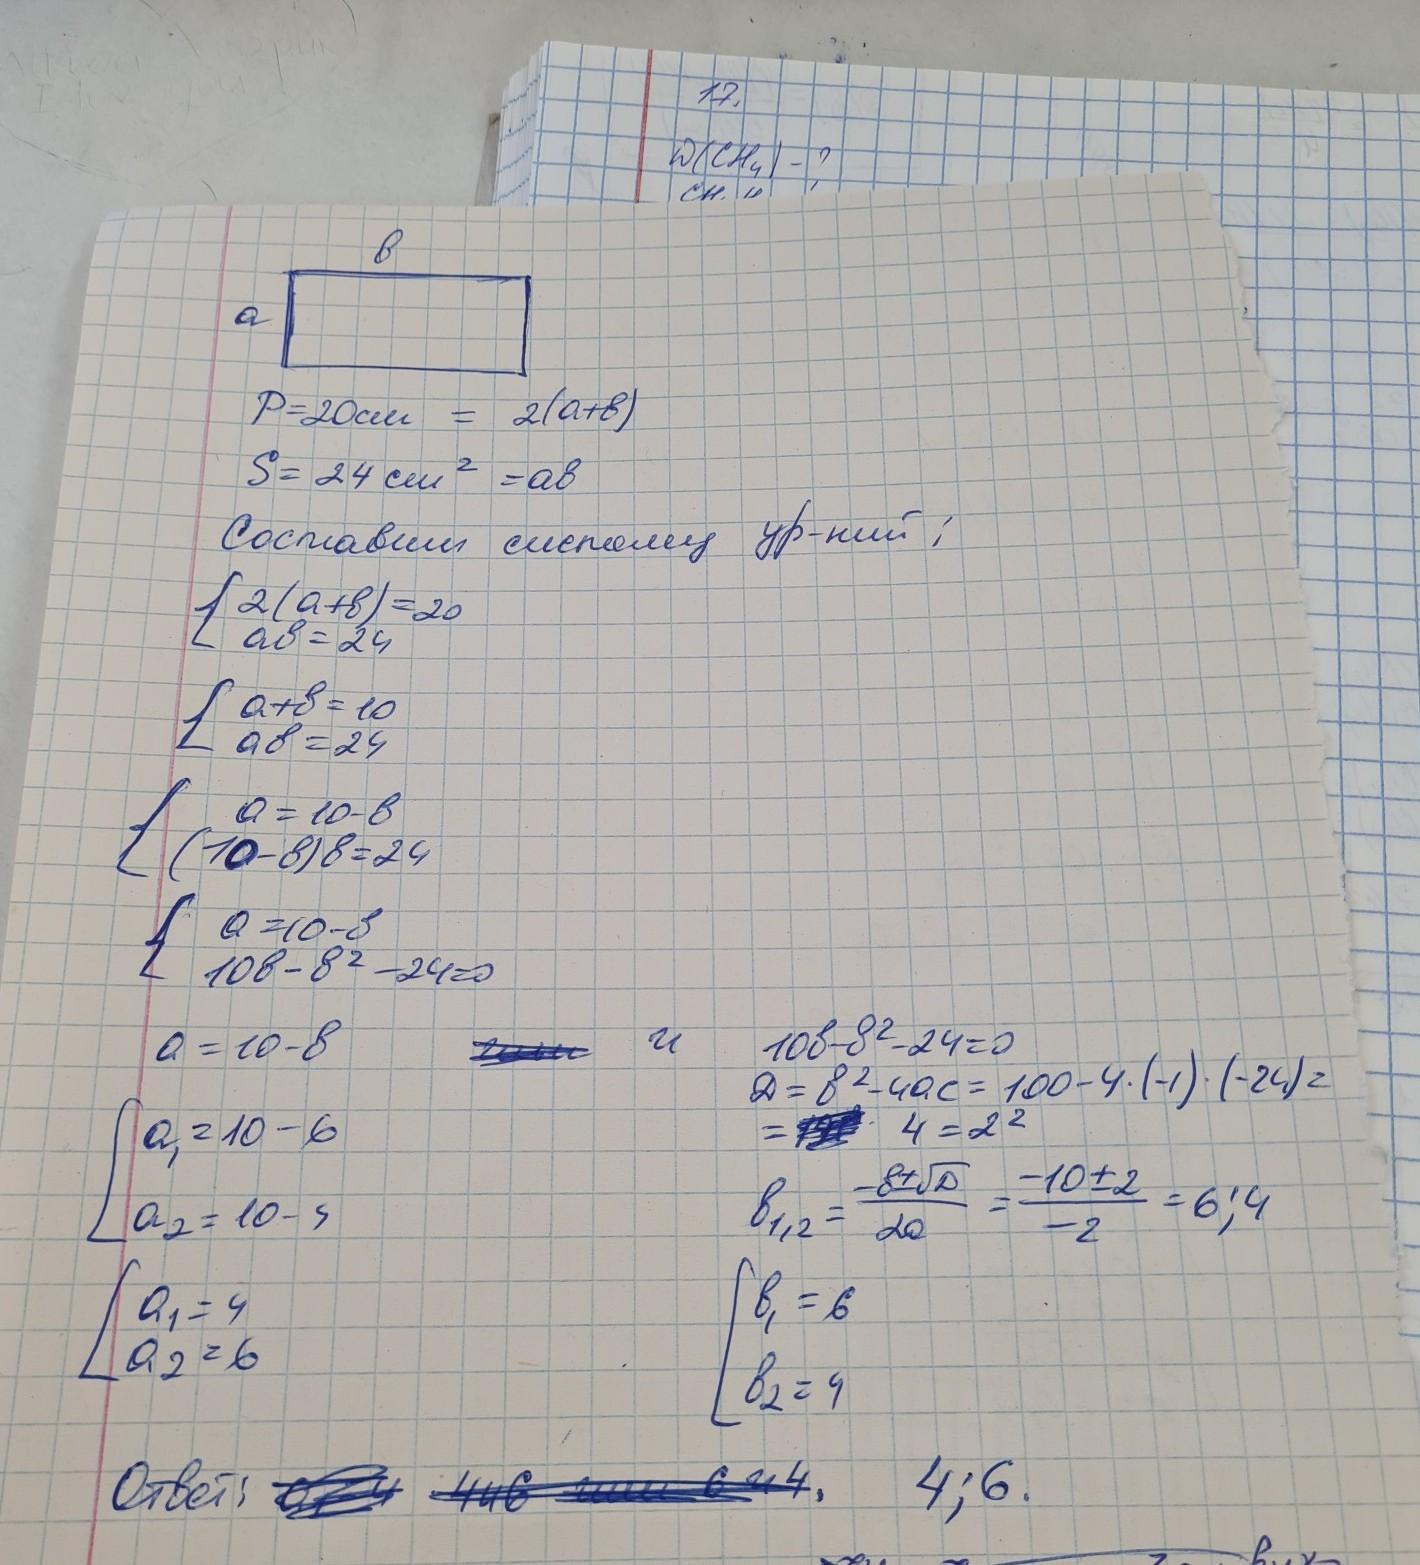 17.
D(CH₄) - ?
в
а
P=20см = 2(а+в)
S = 24 см² = ав
Составим систему ур-ний:
{ 2(а+в)=20
ав = 24
{ а+в = 10
ав = 24
{ а = 10-в
(10-в)в=24
{ а = 10-в
10в - в² - 24=0
а = 10-в и 10в-в²-24=0
D = в²-4ас = 100-4·(-1)·(-24)=
= 4 = 2²
[ а₁ = 10 - 6
а₂ = 10 - 4
в₁,₂ = (-в±√D)/2а = (-10±2)/(-2) = 6; 4
[ а₁ = 4
а₂ = 6
[ в₁ = 6
в₂ = 4
Ответ: 4 и 6 или 6 и 4. 4; 6.